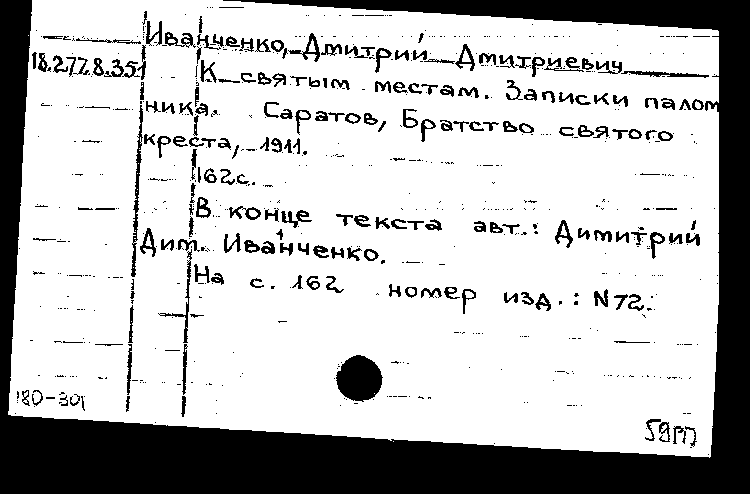 Иванченко, Дмитрий Дмитриевич
18.277.8.351
К святым местам. Записки палом
ника. Саратов, Братство святого
креста, 1911.
162с.
В конце текста авт.: Димитрий
Дим. Иванченко.
На с. 162 номер изд.: N72.
180-301